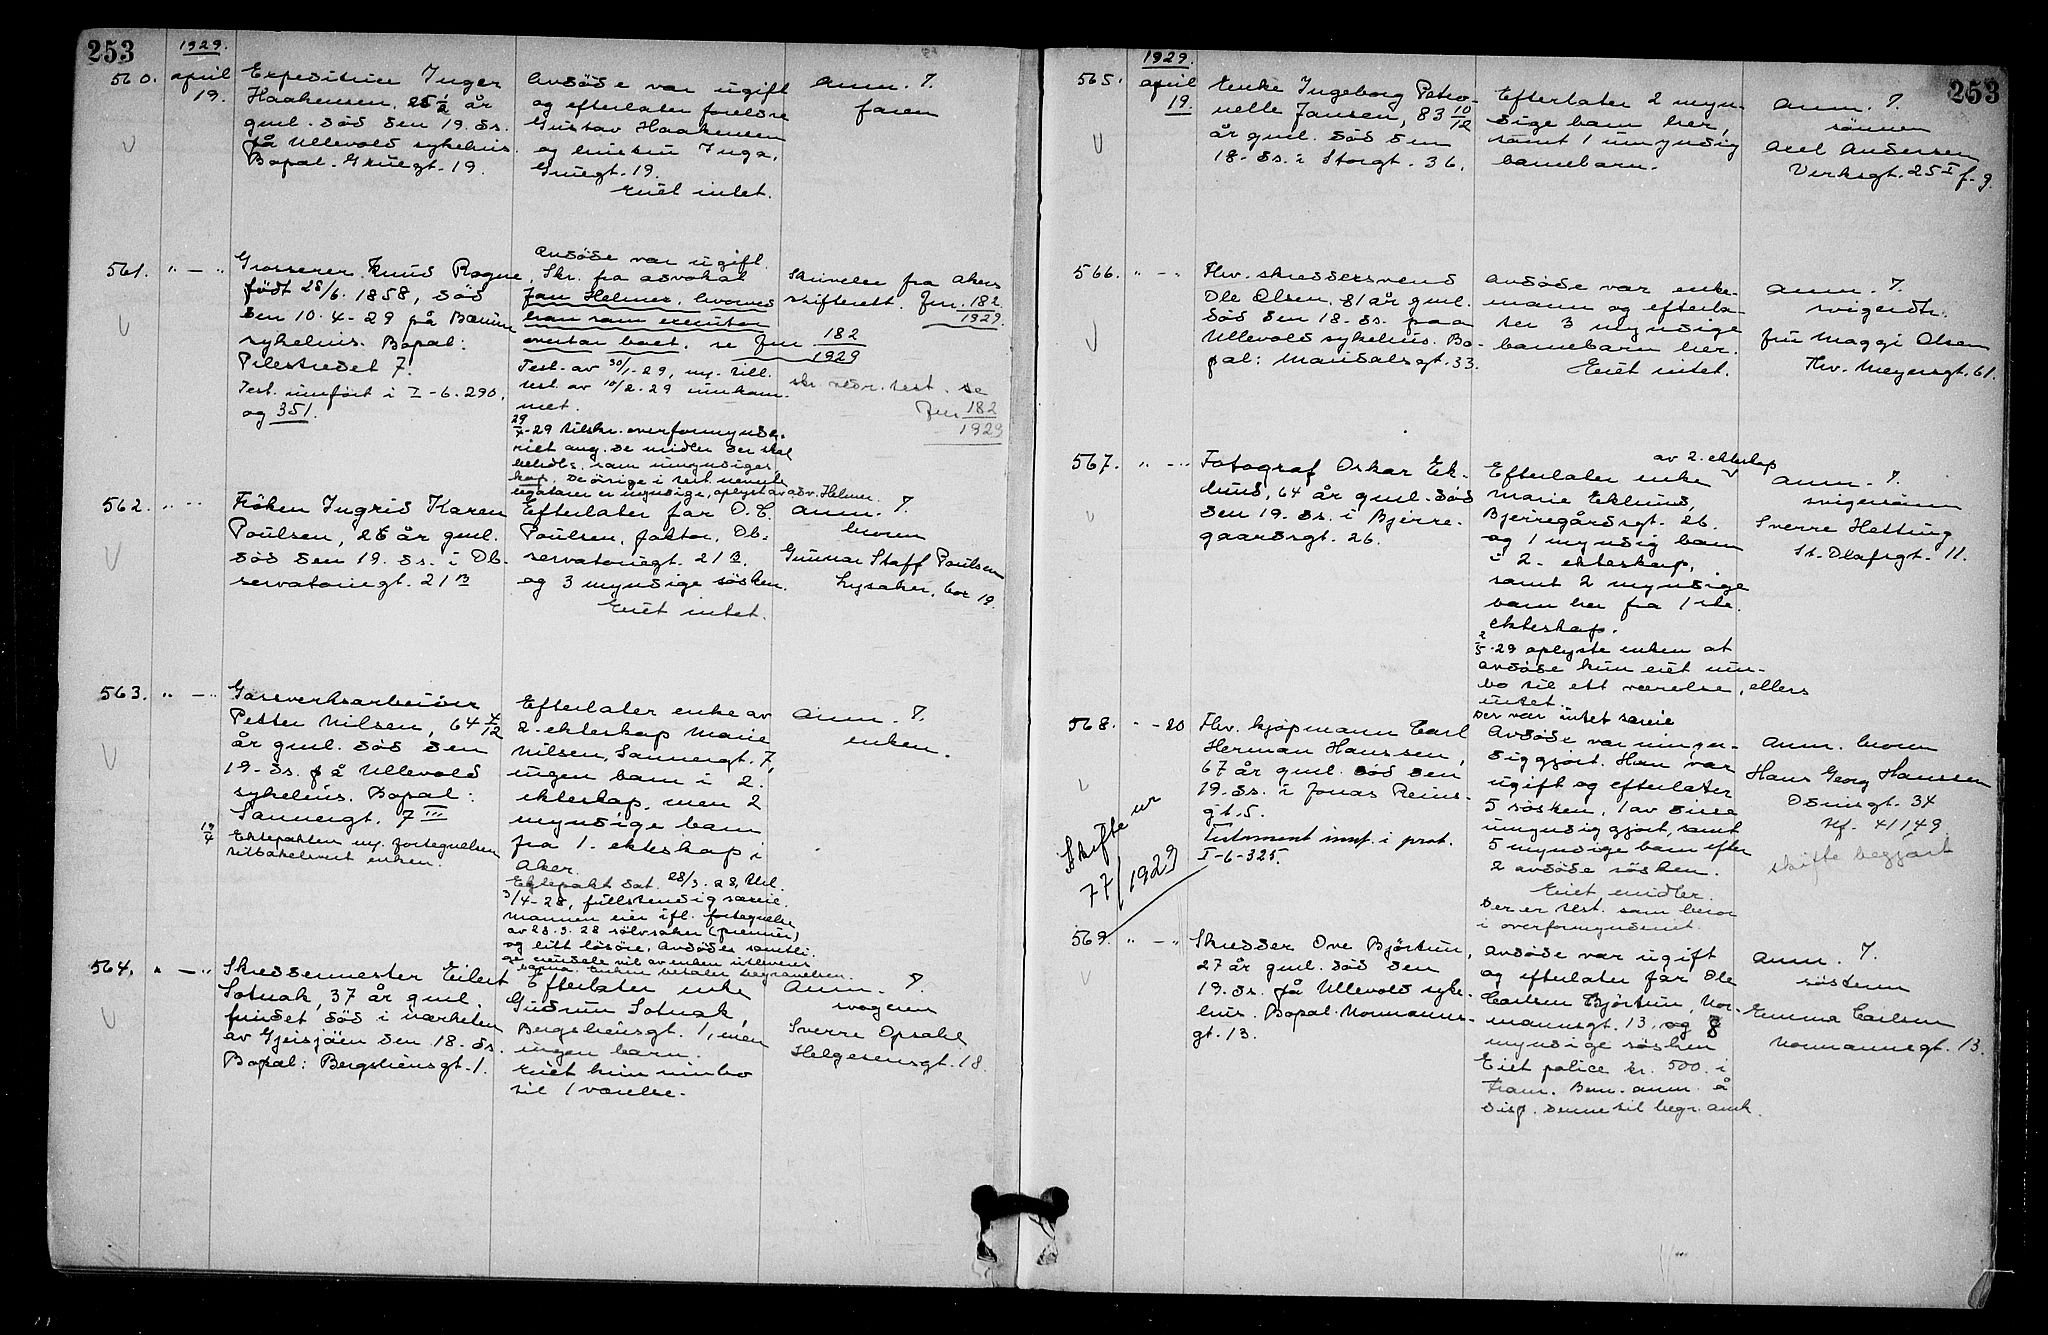 253
1929.
560.
april
19.
Expeditrice Inger
Haakensen, 25 1/2 år
gml. död den 19. ds.
på Ullevold sykehus.
Bopal. Gruegt. 19.
Avdöde var ugift
og efterlater foreldre
Gustav Haakensen
og hustru Inga,
Gruegt. 19.
Eiet intet.
Anm. 7.
faren
561.
" — "
Grosserer Knud Rogne
födt 28/6. 1858, död
den 10. 4-29 på Bærum
sykehus. Bopal:
Pilestredet 7.
Test. innfört i I-6. 290,
og 351.
Avdöde var ugift.
Skr. fra advokat
Jan Helmer, hvorved
han som executor
overtar boet, se Jnr 182/1929
Test. av 30/1-29, m. till.
test. av 10/2-29 innkom-
met.
29/4-29 tilskr. overformynde-
riet ang. de midler der skal
beholds. som umyndiges
kap. De övrige i test. nevnte
legatarer er myndige, oplyst av adv. Helmer.
Skrivelse fra Akers
skifterett. Jnr. 182/1929.
skr. vedr. test. se
Jnr 182/1929
562.
" "
Fröken Ingrid Karen
Poulsen, 26 år gml.
död den 19. ds. i Ob-
servatoriegt. 21 B
Efterlater far O. C.
Poulsen, faktor, Ob-
servatoriegt. 21 B.
og 3 myndige sösken.
Eiet intet.
Anm. 7.
broren
Gunnar Staff Poulsen
Lysaker, box 19.
563.
" — "
Gassverksarbeider
Petter Nilsen, 64 4/12
år gml. död den
19. ds. på Ullevold
sykehus. Bopal:
Sannergt. 7 III
19/4 Ektepakten m. fortegnelsen
tilbakelevert enken.
Efterlater enke av
2. ekteskap Marie
Nilsen, Sannergt. 7,
ingen barn i 2.
ekteskap, men 2
myndige barn
fra 1. ekteskap i
Aker.
Ektepakt dat. 28/3. 28, tnl.
3/4-28, fullstendig særeie.
Mannen eier ifl. fortegnelse
av 28. 3. 28 sölvsaker (premier)
og litt lösöre. Avdödes samtli-
ge eiendele vil av enken utleveres
barna. Enken betaler begravelsen.
Anm. 7.
enken.
564.
" — "
Skreddermester Eilert
Sotnak, 37 år gml.
fundet död i nærheten
av Gjersjöen den 18. ds.
Bopal: Bergsliensgt. 1.
Efterlater enke
Gudrun Sotnak,
Bergsliensgt. 1, men
ingen barn.
Eiet kun innbo
til 1 værelse.
Anm. 7.
svogeren
Sverre Opsahl
Helgesensgt. 18.
253
1929.
565.
april
19.
Enke Ingeborg Petro-
nelle Jansen, 83 10/12
år gml. död den
18. ds. i Storgt. 36.
Efterlater 2 myn-
dige barn her,
samt 1 umyndig
barnebarn.
Anm. 7.
sönnen
Axel Andersen
Verksgt. 25 I f. g.
566.
" — "
Fhv. skreddersvend
Ole Olsen, 81 år gml.
död den 18. ds. paa
Ullevold sykehus. Bo-
pal: Maridalsgt. 33.
Avdöde var enke-
mann og efterla-
ter 3 myndige
barnebarn her.
Eiet intet.
Anm. 7.
svigerdtr.
fru Maggi Olsen
Thv. Meyersgt. 61.
567.
" — "
Fotograf Oskar Ek-
lund, 64 år gml. död
den 19. ds. i Bjerre-
gaardsgt. 26.
av 2. ekteskap
Efterlater enke
Marie Eklund,
Bjerregårdsgt. 26.
og 1 myndig barn
i 2. ekteskap,
samt 2 myndige
barn her fra 1ste
ekteskap.
2/5-29 oplyste enken at
avdöde kun eiet inn-
bo til ett værelse, ellers
intet.
Der var intet særeie
Anm. 7.
svigersönn
Sverre Hetting
St. Olafsgt. 11.
568.
" - 20
Fhv. kjöpmann Carl
Herman Hanssen,
67 år gml. död den
19. ds. i Jonas Reins-
gt. 5.
Testament innf. i prot.
I-6-325.
Skifte nr
77/1929
Avdöde var umyn-
diggjort. Han var
ugift og efterlater
5 sösken, 1 av disse
umyndiggjort, samt
5 myndige barn efter
2 avdöde sösken.
Eiet midler.
Der er test. som beror
i overformynderiet.
Anm. broren
Hans Georg Hanssen
Odinsgt. 34
tlf. 41149.
skifte begjært
569.
" — "
Skredder Ove Björtun,
27 år gml. död den
19. ds. på Ullevold syke-
hus. Bopal. Normanns-
gt. 13.
Avdöde var ugift
og efterlater far Ole
Carlsen Björtun, Nor-
mannsgt. 13, og 8
myndige sösken
Eiet police kr. 500. i
Fram. Bem. anm. å
disp. denne til begr. omk.
Anm. 7.
sösteren
Emma Carlsen
Normannsgt. 13.